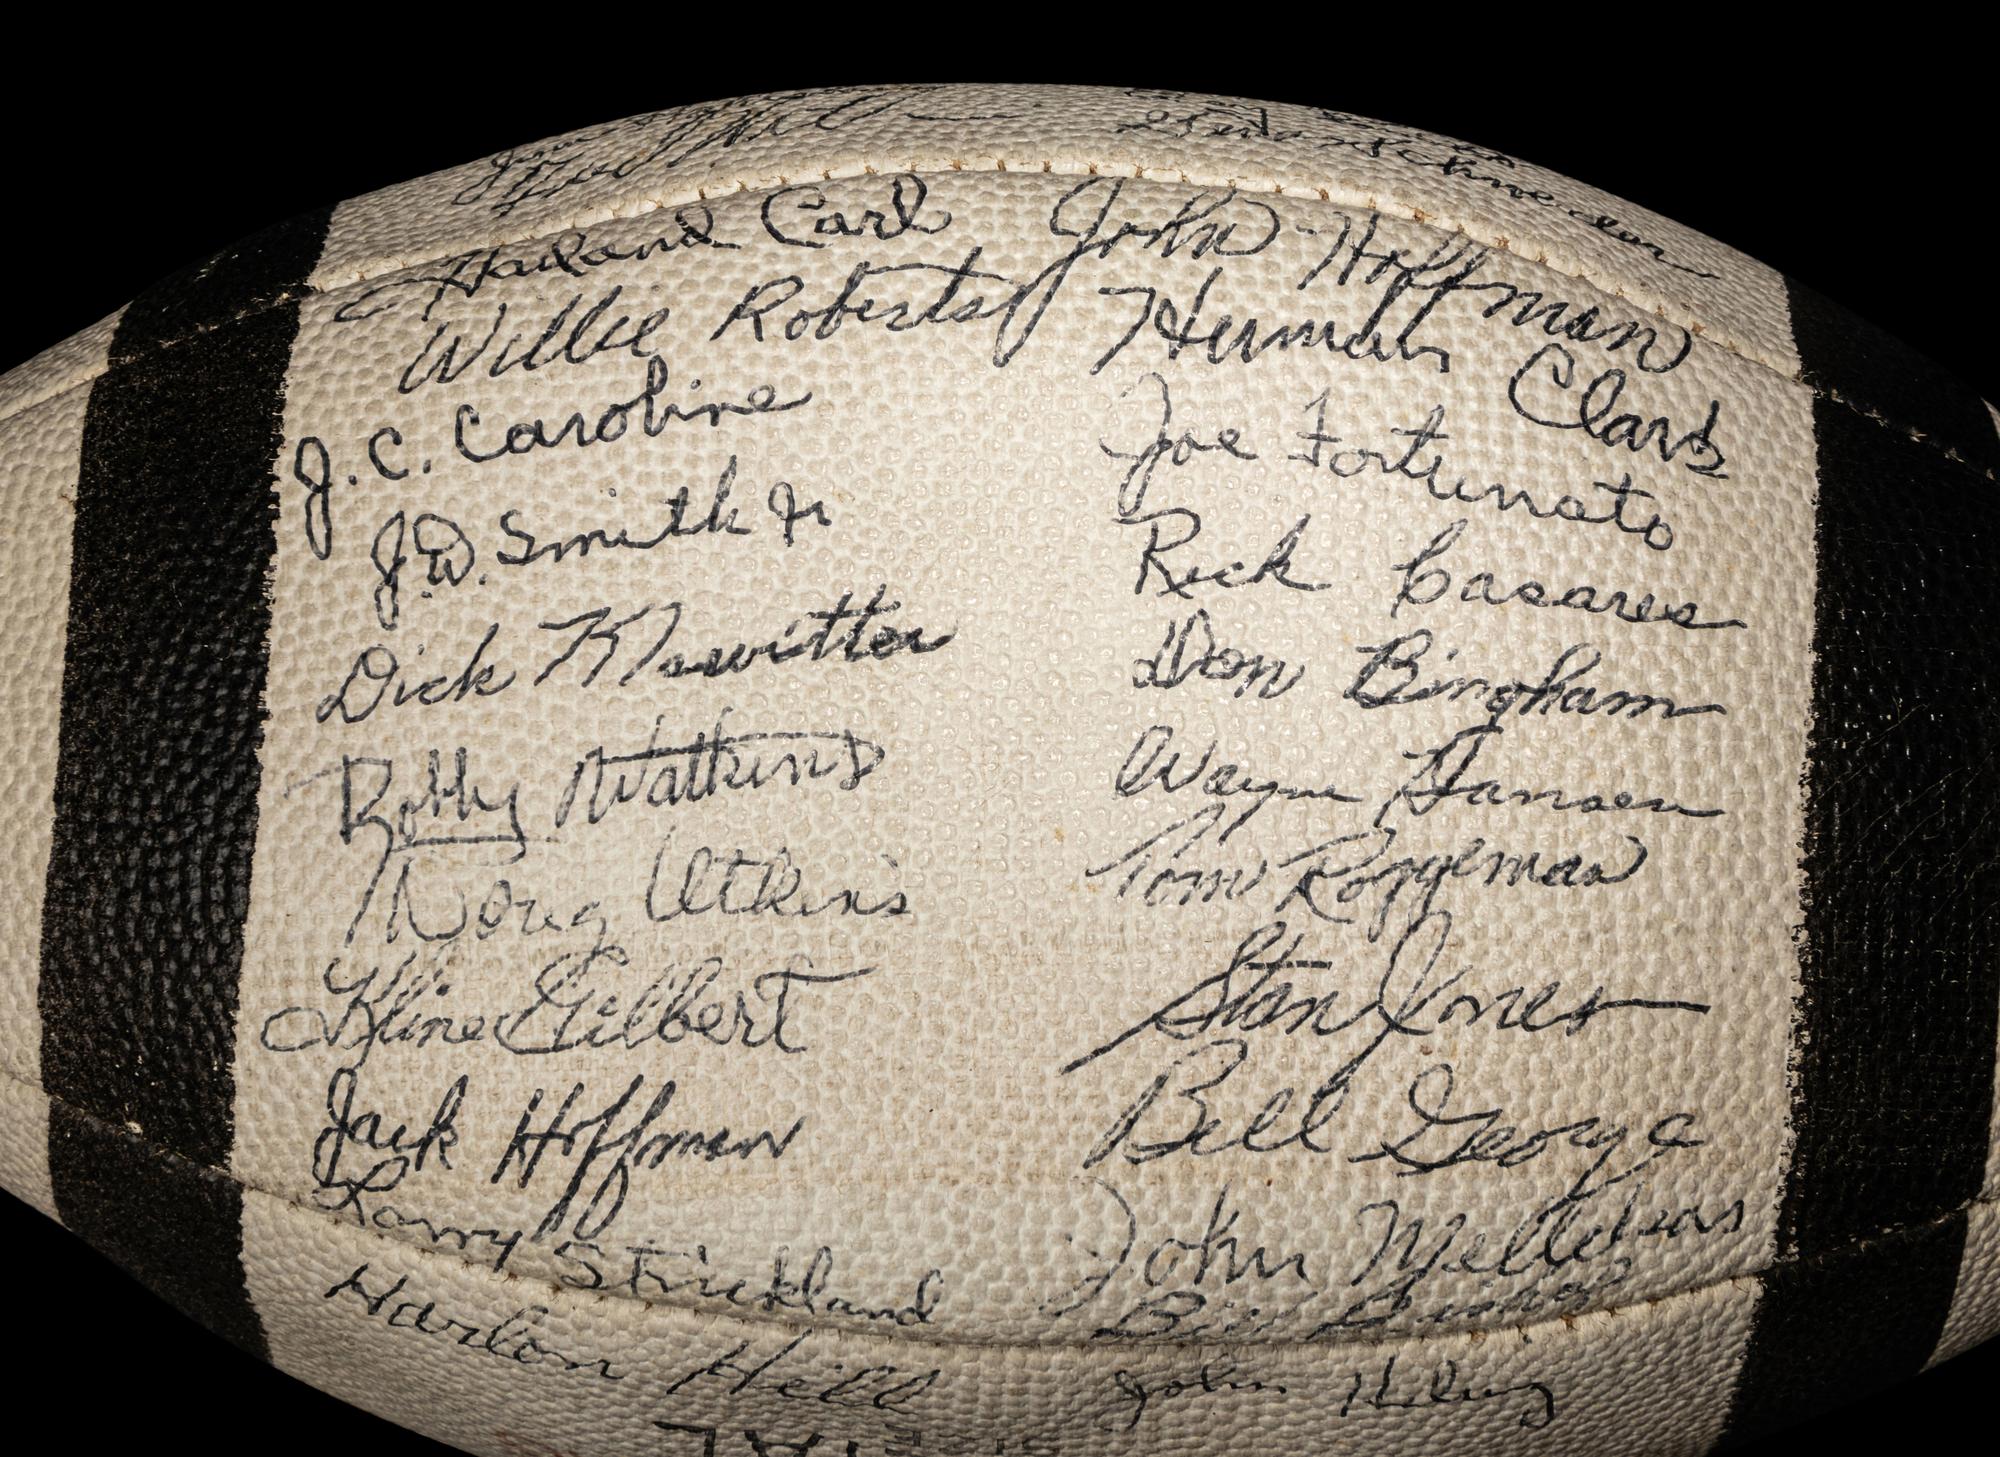 Harland Carl
Willie Roberts
J.C. Caroline
J.W. Smith Jr
Dick Klawitter
Bobby Watkins
Doug Atkins
Kline Gilbert
Jack Hoffman
Larry Strickland
Harlon Hill
John Hoffman
Herman Clark
Joe Fortunato
Rick Casares
Don Bingham
Wayne Hansen
Tom Roggeman
Stan Jones
Bill George
John Mellekas
Bill Bishop
John Helwig
Gene Schroeder